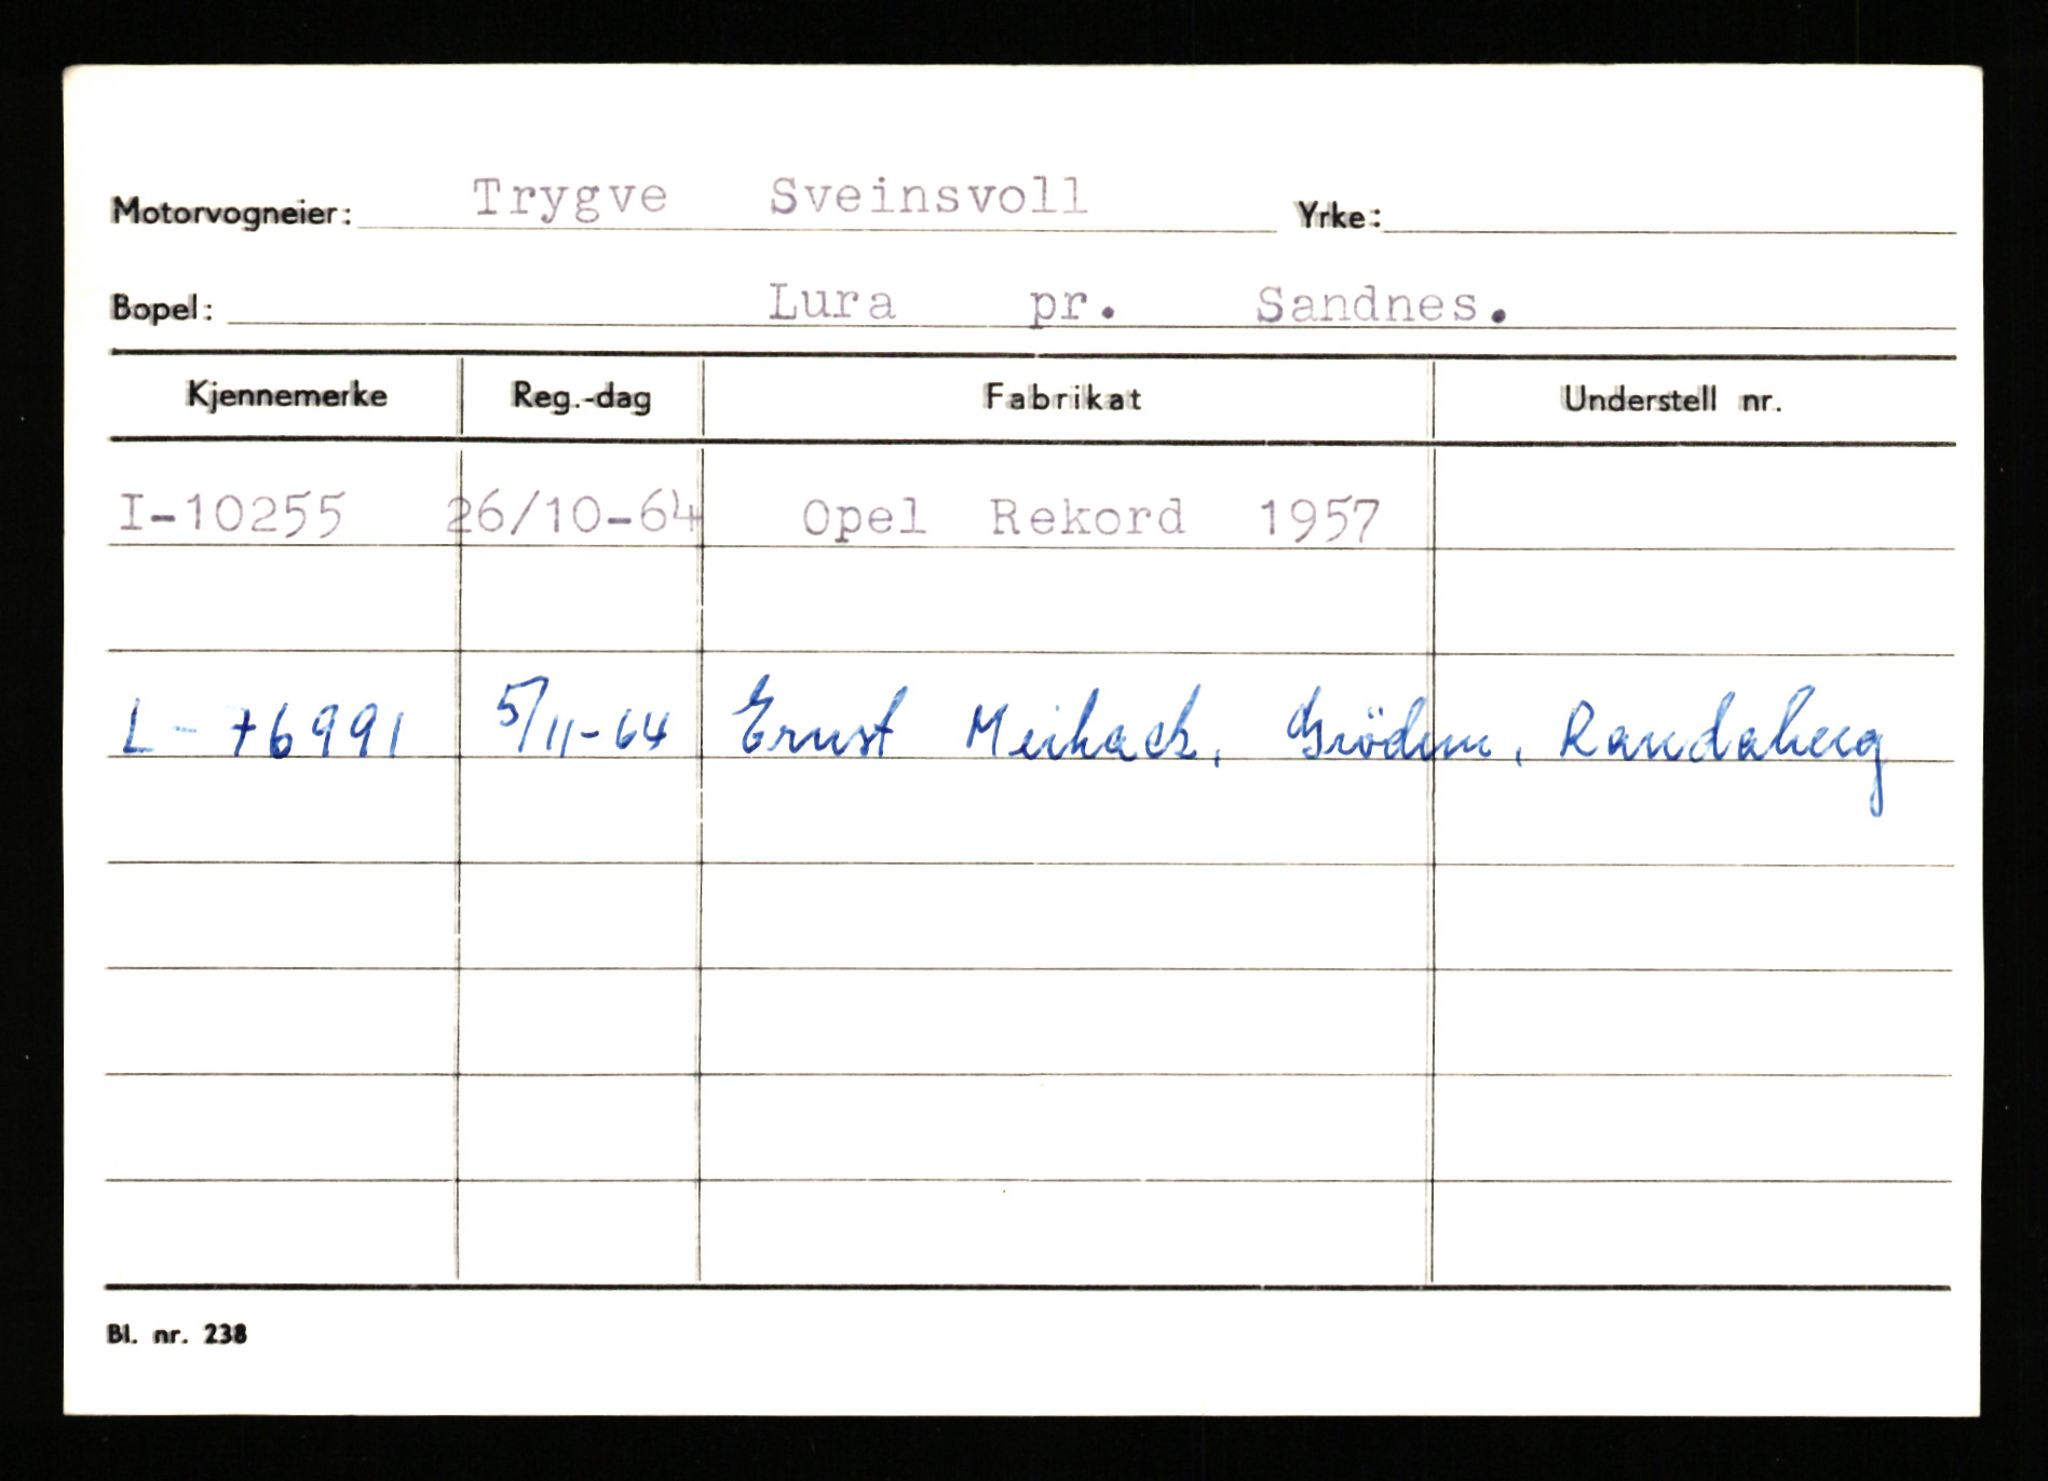 Motorvogneier: Trygve Sveinsvoll Yrke:
Bopel: Lura pr. Sandnes.
Kjennemerke Reg.-dag Fabrikat Understell nr.
I-10255 26/10-64 Opel Rekord 1957
L-76991 5/11-64 Ernst Meihack, Grödem, Randaberg
Bl. nr. 238